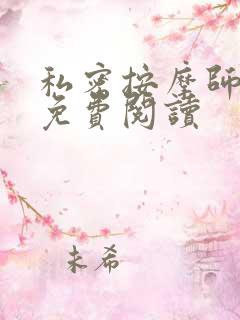 私密按摩師
免費閱讀
未希